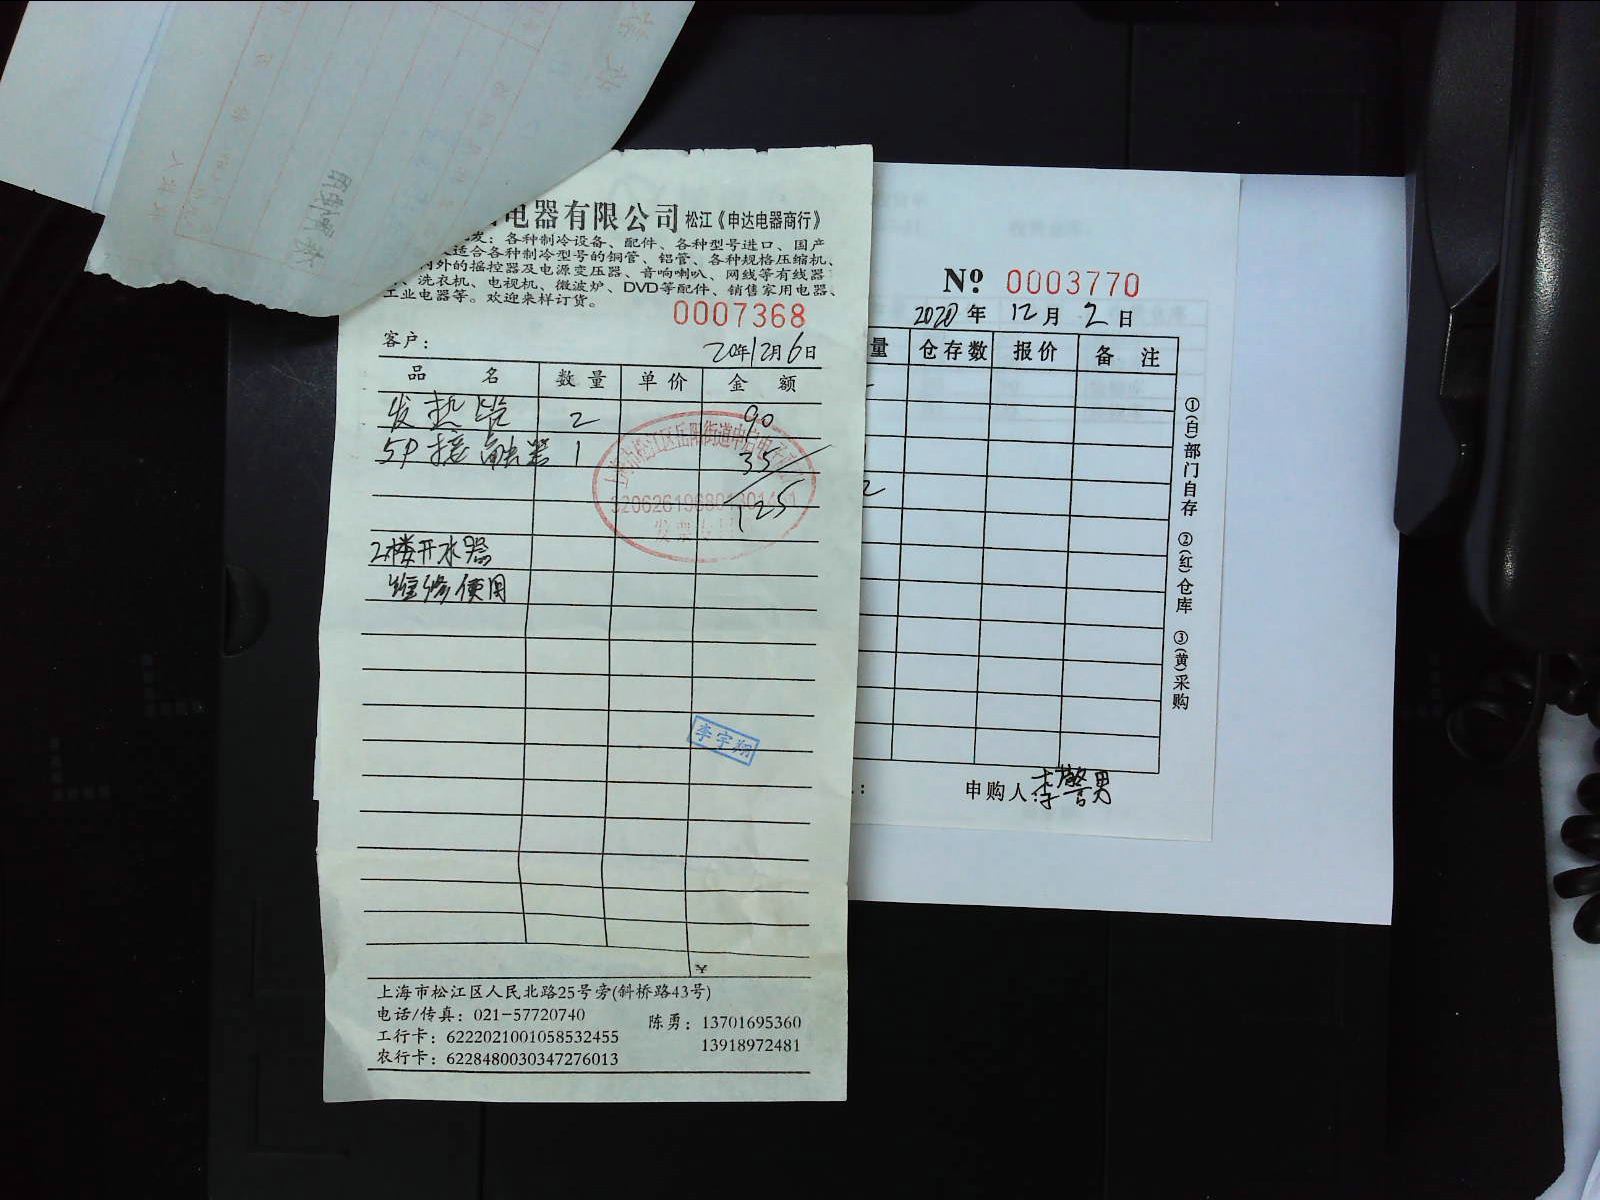 电器有限公司 松江《申达电器商行》
发：各种制冷设备、配件、各种型号进口、国产
适合各种制冷型号的铜管、铝管、各种规格压缩机、
内外的摇控器及电源变压器、音响喇叭、网线等有线器
、洗衣机、电视机、微波炉、DVD等配件、销售家用电器、
工业电器等。欢迎来样订货。
0007368
客户：
20年12月6日
品 名 数量 单价 金 额
发热管 2 90
5P接触器 1 35
125
2楼开水器
维修使用
李宇翔
大
上海市松江区人民北路25号旁(斜桥路43号)
电话/传真：021-57720740
陈勇：13701695360
工行卡：6222021001058532455
13918972481
农行卡：6228480030347276013
№ 0003770
2020年 12月 2日
量 仓存数 报价 备 注
2
①(白)部门自存 ②(红)仓库 ③(黄)采购
申购人